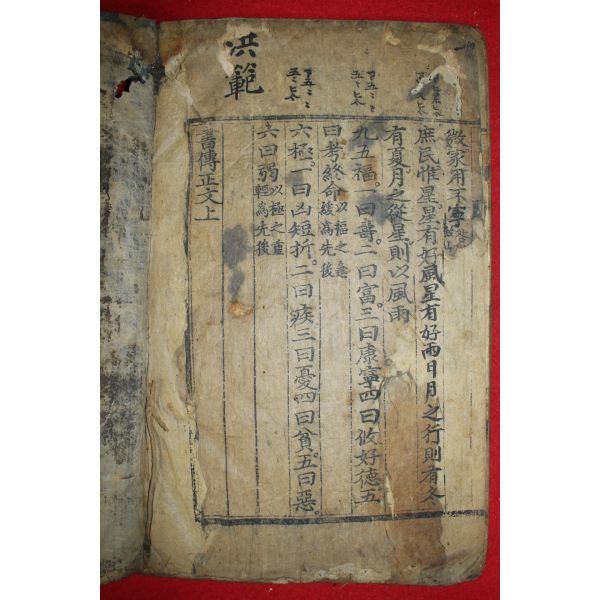 洪範
微家用不寧
庶民惟星星有好風星有好雨日月之行則有冬
有夏月之從星則以風雨
九五福一曰壽二曰富三曰康寧四曰攸好德五
曰考終命以福之急緩爲先後
六極一曰凶短折二曰疾三曰憂四曰貧五曰惡
六曰弱以極之重輕爲先後
書傳正文上